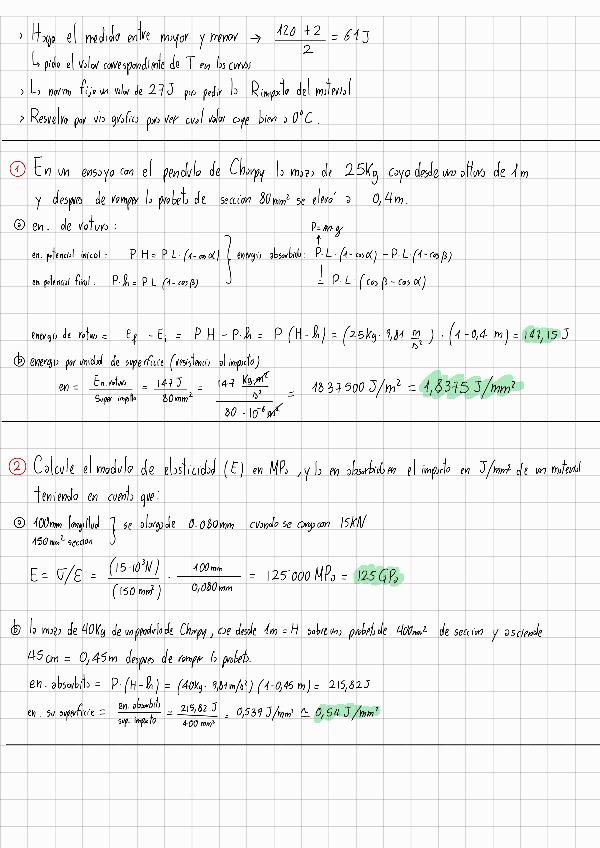 › Hago el medida entre mayor y menor → (120 + 2)/2 = 61 J
↳ pido el valor correspondiente de T en las curvas
› La norma fija un valor de 27 J para pedir la Rimpacto del material
› Resuelvo por via grafica para ver cual valor cae bien a 0°C.
① En un ensayo con el pendulo de Charpy la maza de 25Kg cayo desde una altura de 1m
y despues de romper la probeta de seccion 80mm² se elevó a 0,4m.
ⓐ en. de rotura:
P=m·g
en. potencial inicial: P H = P L · (1-cos α) } energia absorbida: P·L·(1-cos α) - P·L (1-cos β)
en potencial final: P·h = P L (1-cos β)
P·L (cos β - cos α)
energia de rotura = Ef - Ei = P H - P·h = P (H-h) = (25Kg · 9,81 m/s²) · (1-0,4 m) = 147,15 J
ⓑ energia por unidad de superficie (resistencia al impacto)
en = En. rotura / Super impacto = 147 J / 80 mm² = 147 Kg·m²/s² / 80 · 10⁻⁶ m² = 1837500 J/m² = 1,8375 J/mm²
② Calcule el modulo de elasticidad (E) en MPa, y la en absorbida en el impacto en J/mm² de un material
teniendo en cuenta que:
ⓐ 100mm longitud } se alarga de 0.080mm cuando se carga con 15KN
150mm² seccion
E = σ/ε = (15·10³N)/(150 mm²) · 100mm/0,080mm = 125·000 MPa = 125 GPa
ⓑ la maza de 40Kg de un pendulo de Charpy, cae desde 1m = H sobre una probeta de 400mm² de seccion y asciende
45cm = 0,45m despues de romper la probeta.
en. absorbita = P·(H-h) = (40Kg · 9,81m/s²) (1-0,45 m) = 215,82 J
en. su superficie = en. absorbita / sup. impacto = 215,82 J / 400 mm² = 0,539 J/mm² ≃ 0,54 J/mm²